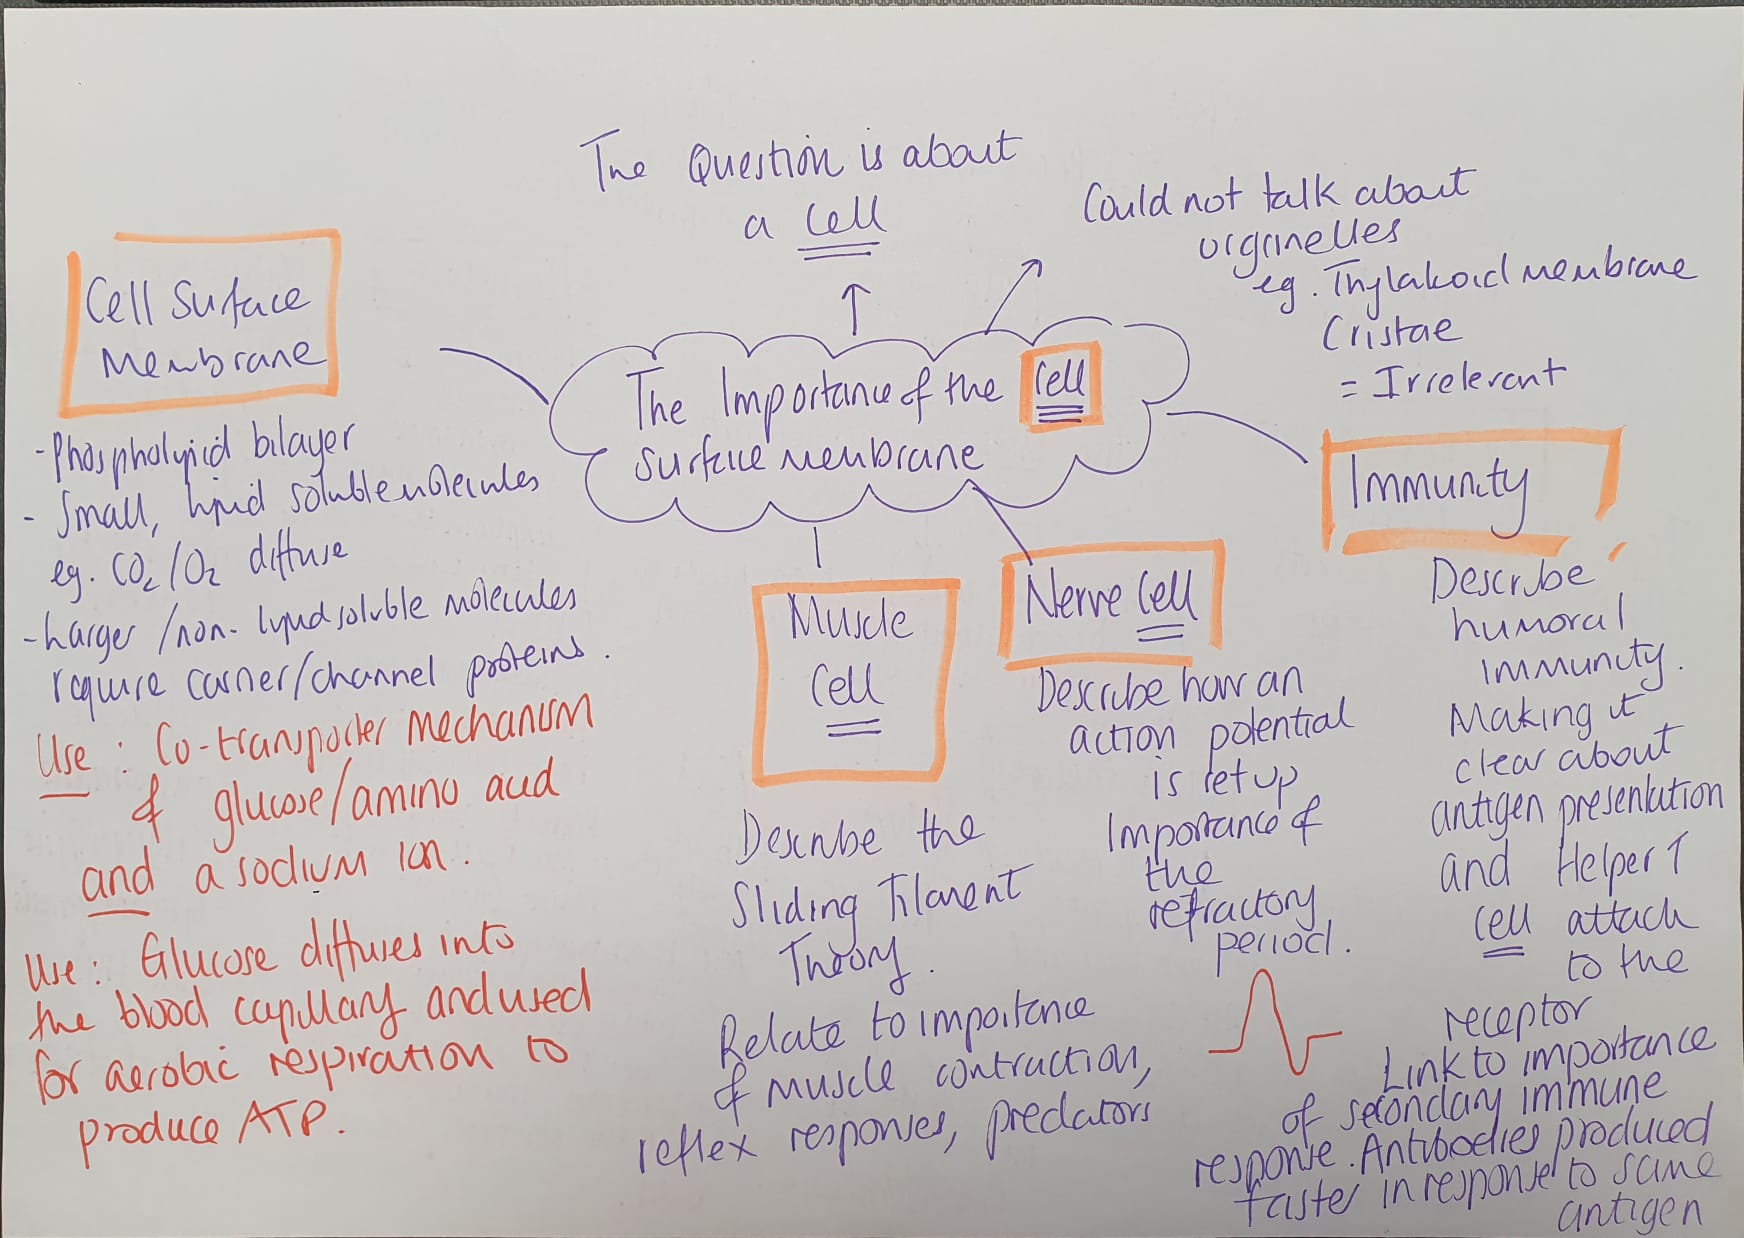 The Question is about
a Cell
Could not talk about
organelles
eg. Thylakoid membrane
Cristae
= Irrelevant
Cell Surface
Membrane
The Importance of the Cell
surface membrane
- Phospholipid bilayer
- Small, lipid soluble molecules
eg. CO₂/O₂ diffuse
- Larger/non-lipid soluble molecules
require carrier/channel proteins.
Use : Co-transporter Mechanism
of glucose/amino acid
and a sodium ion.
Use : Glucose diffuses into
the blood capillary and used
for aerobic respiration to
produce ATP.
Muscle
Cell
Describe the
Sliding Filament
Theory.
Relate to importance
of muscle contraction,
reflex responses, predators
Nerve Cell
Describe how an
action potential
is set up
Importance of
the
refractory
period.
Immunity
Describe
humoral
immunity.
Making it
clear about
antigen presentation
and Helper T
Cell attach
to the
receptor
Link to importance
of secondary immune
response. Antibodies produced
faster in response to same
antigen